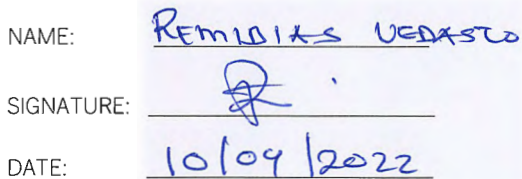 NAME: REMIDIAS VEDASTO
SIGNATURE:
DATE: 10/09/2022